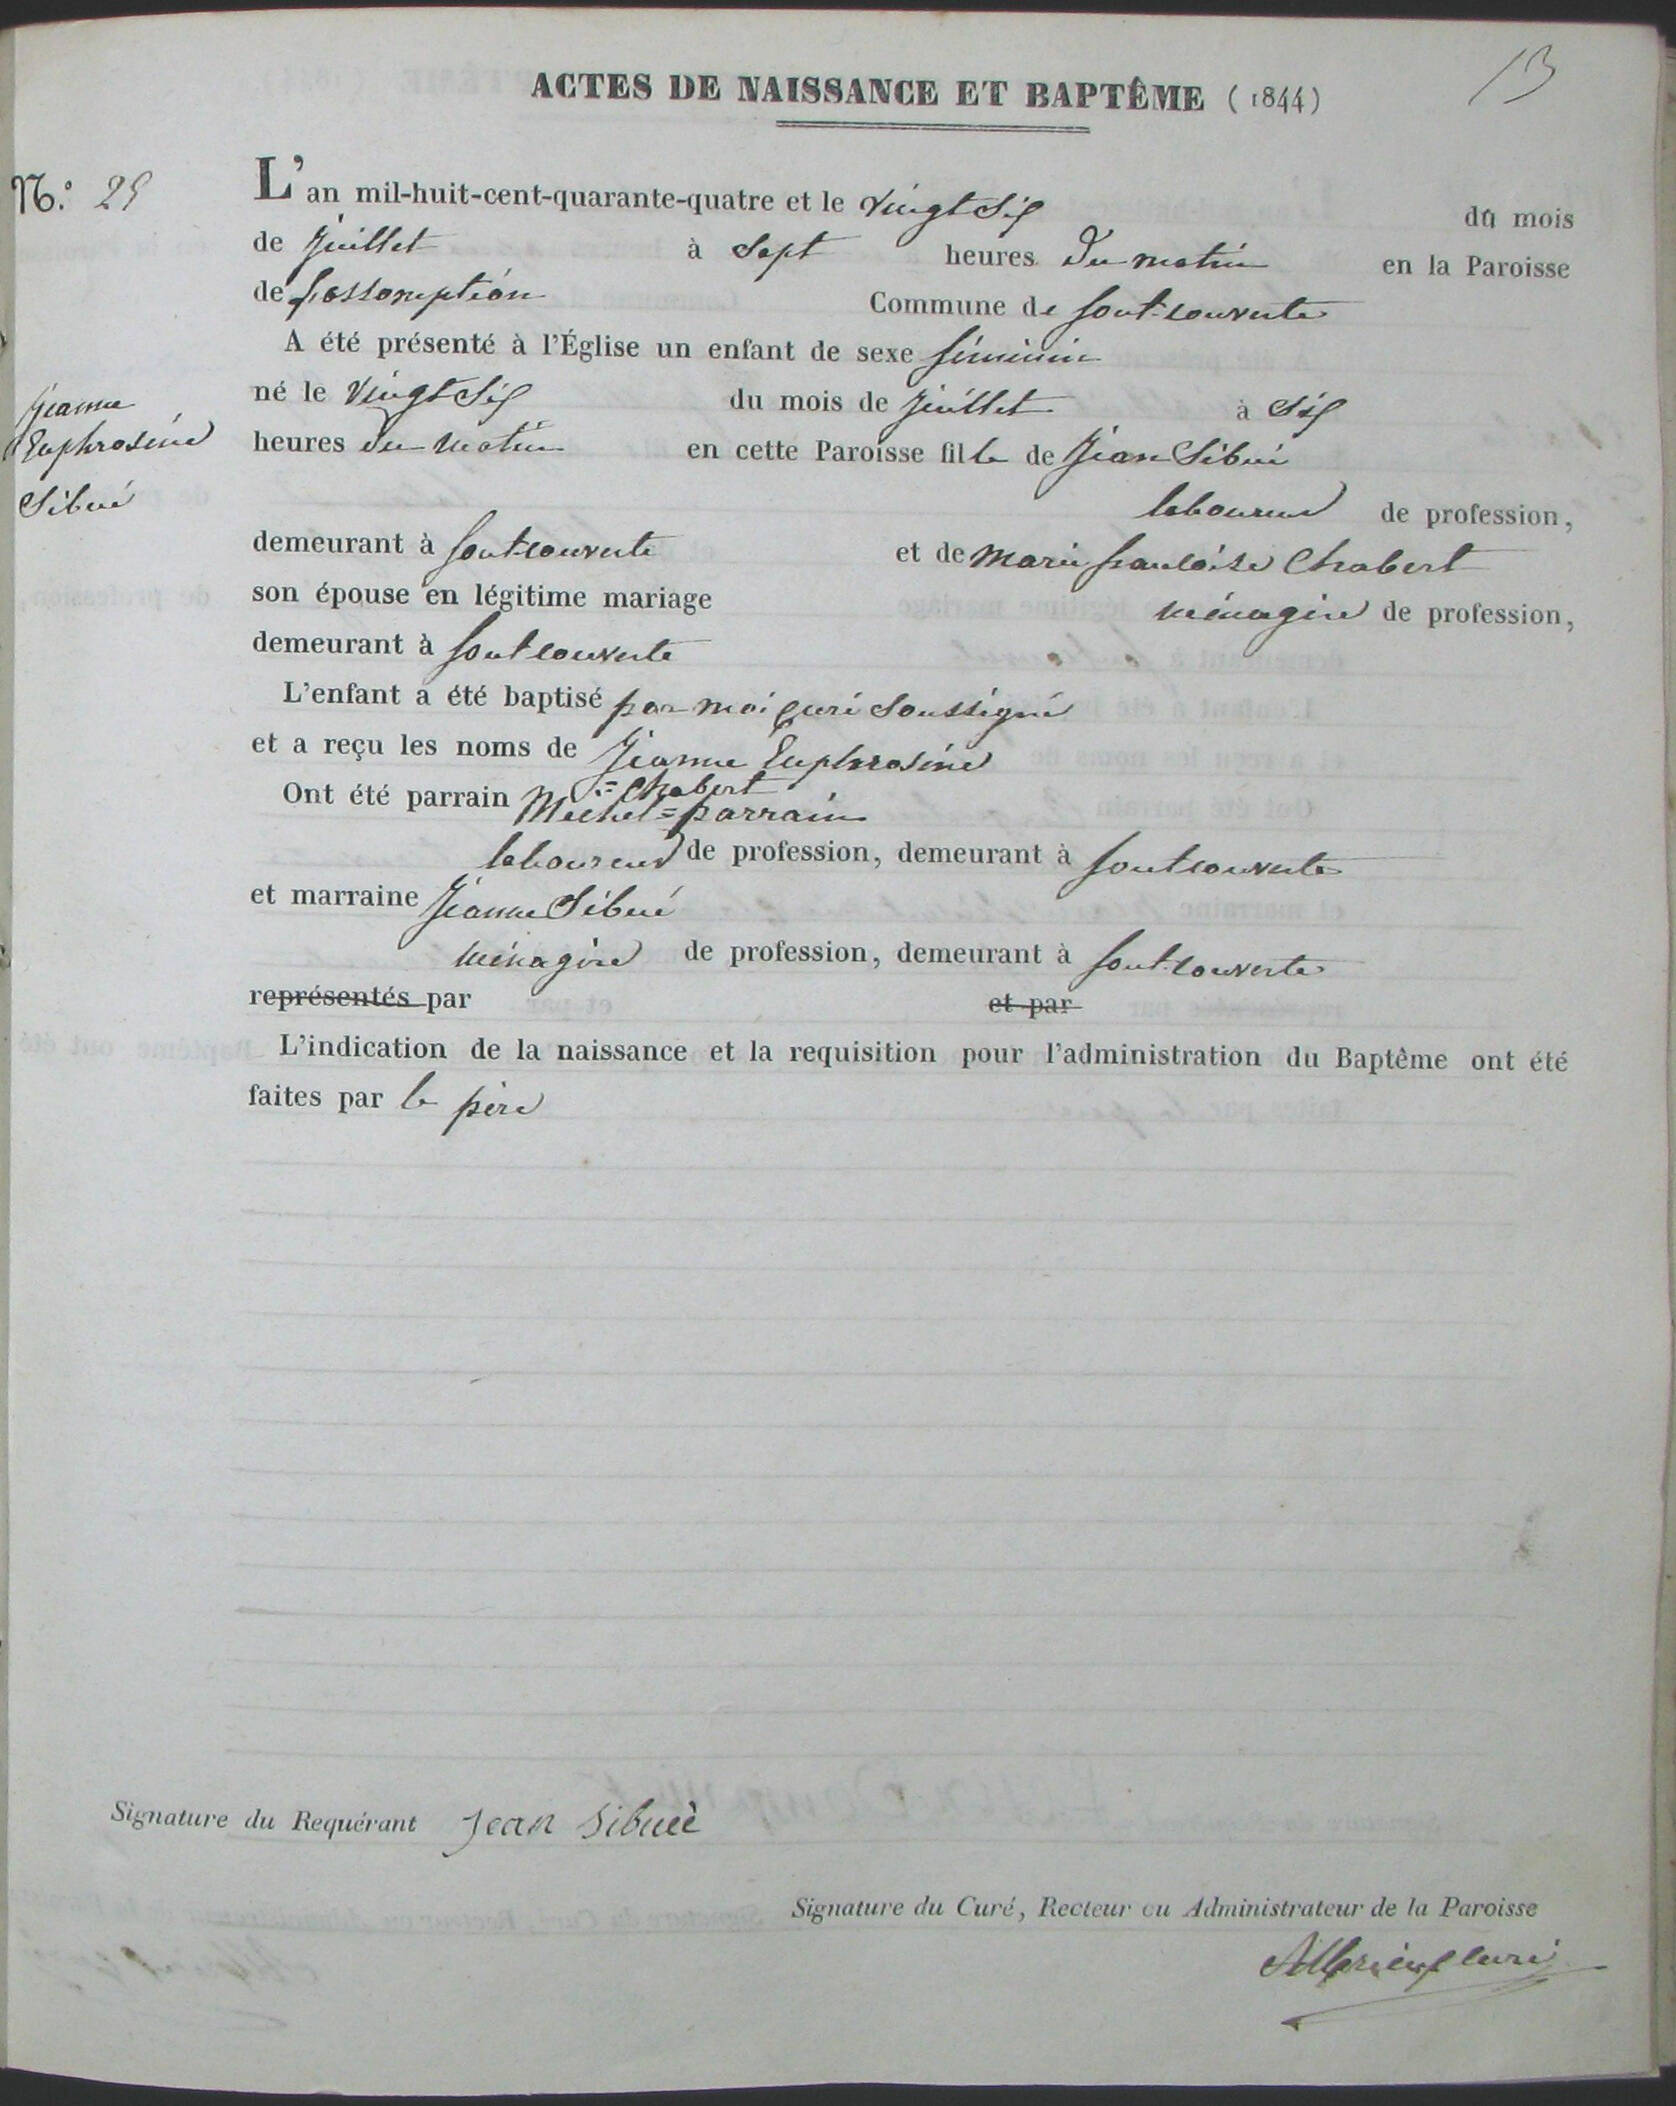 13
ACTES DE NAISSANCE ET BAPTÊME (1844)
N.º 25
L'an mil-huit-cent-quarante-quatre et le vingt six du mois
de juillet à sept heures du matin en la Paroisse
de l'assomption Commune de fontcouverte
A été présenté à l'Église un enfant de sexe féminin
né le vingt six du mois de juillet à six
heures du matin en cette Paroisse fille de Jean Sibué
laboureur de profession,
demeurant à fontcouverte et de marie françoise Chabert
son épouse en légitime mariage ménagère de profession,
demeurant à fontcouverte
L'enfant a été baptisé par moi curé soussigné
et a reçu les noms de Jeanne Euphrosine
=Chabert
Ont été parrain Michel=parrain
laboureur de profession, demeurant à fontcouverte
et marraine Jeanne Sibué
ménagère de profession, demeurant à fontcouverte
représentés par et par
L'indication de la naissance et la requisition pour l'administration du Baptême ont été
faites par le père
Jeanne
Euphrosine
Sibué
Signature du Requérant Jean Sibué
Signature du Curé, Recteur ou Administrateur de la Paroisse
curé